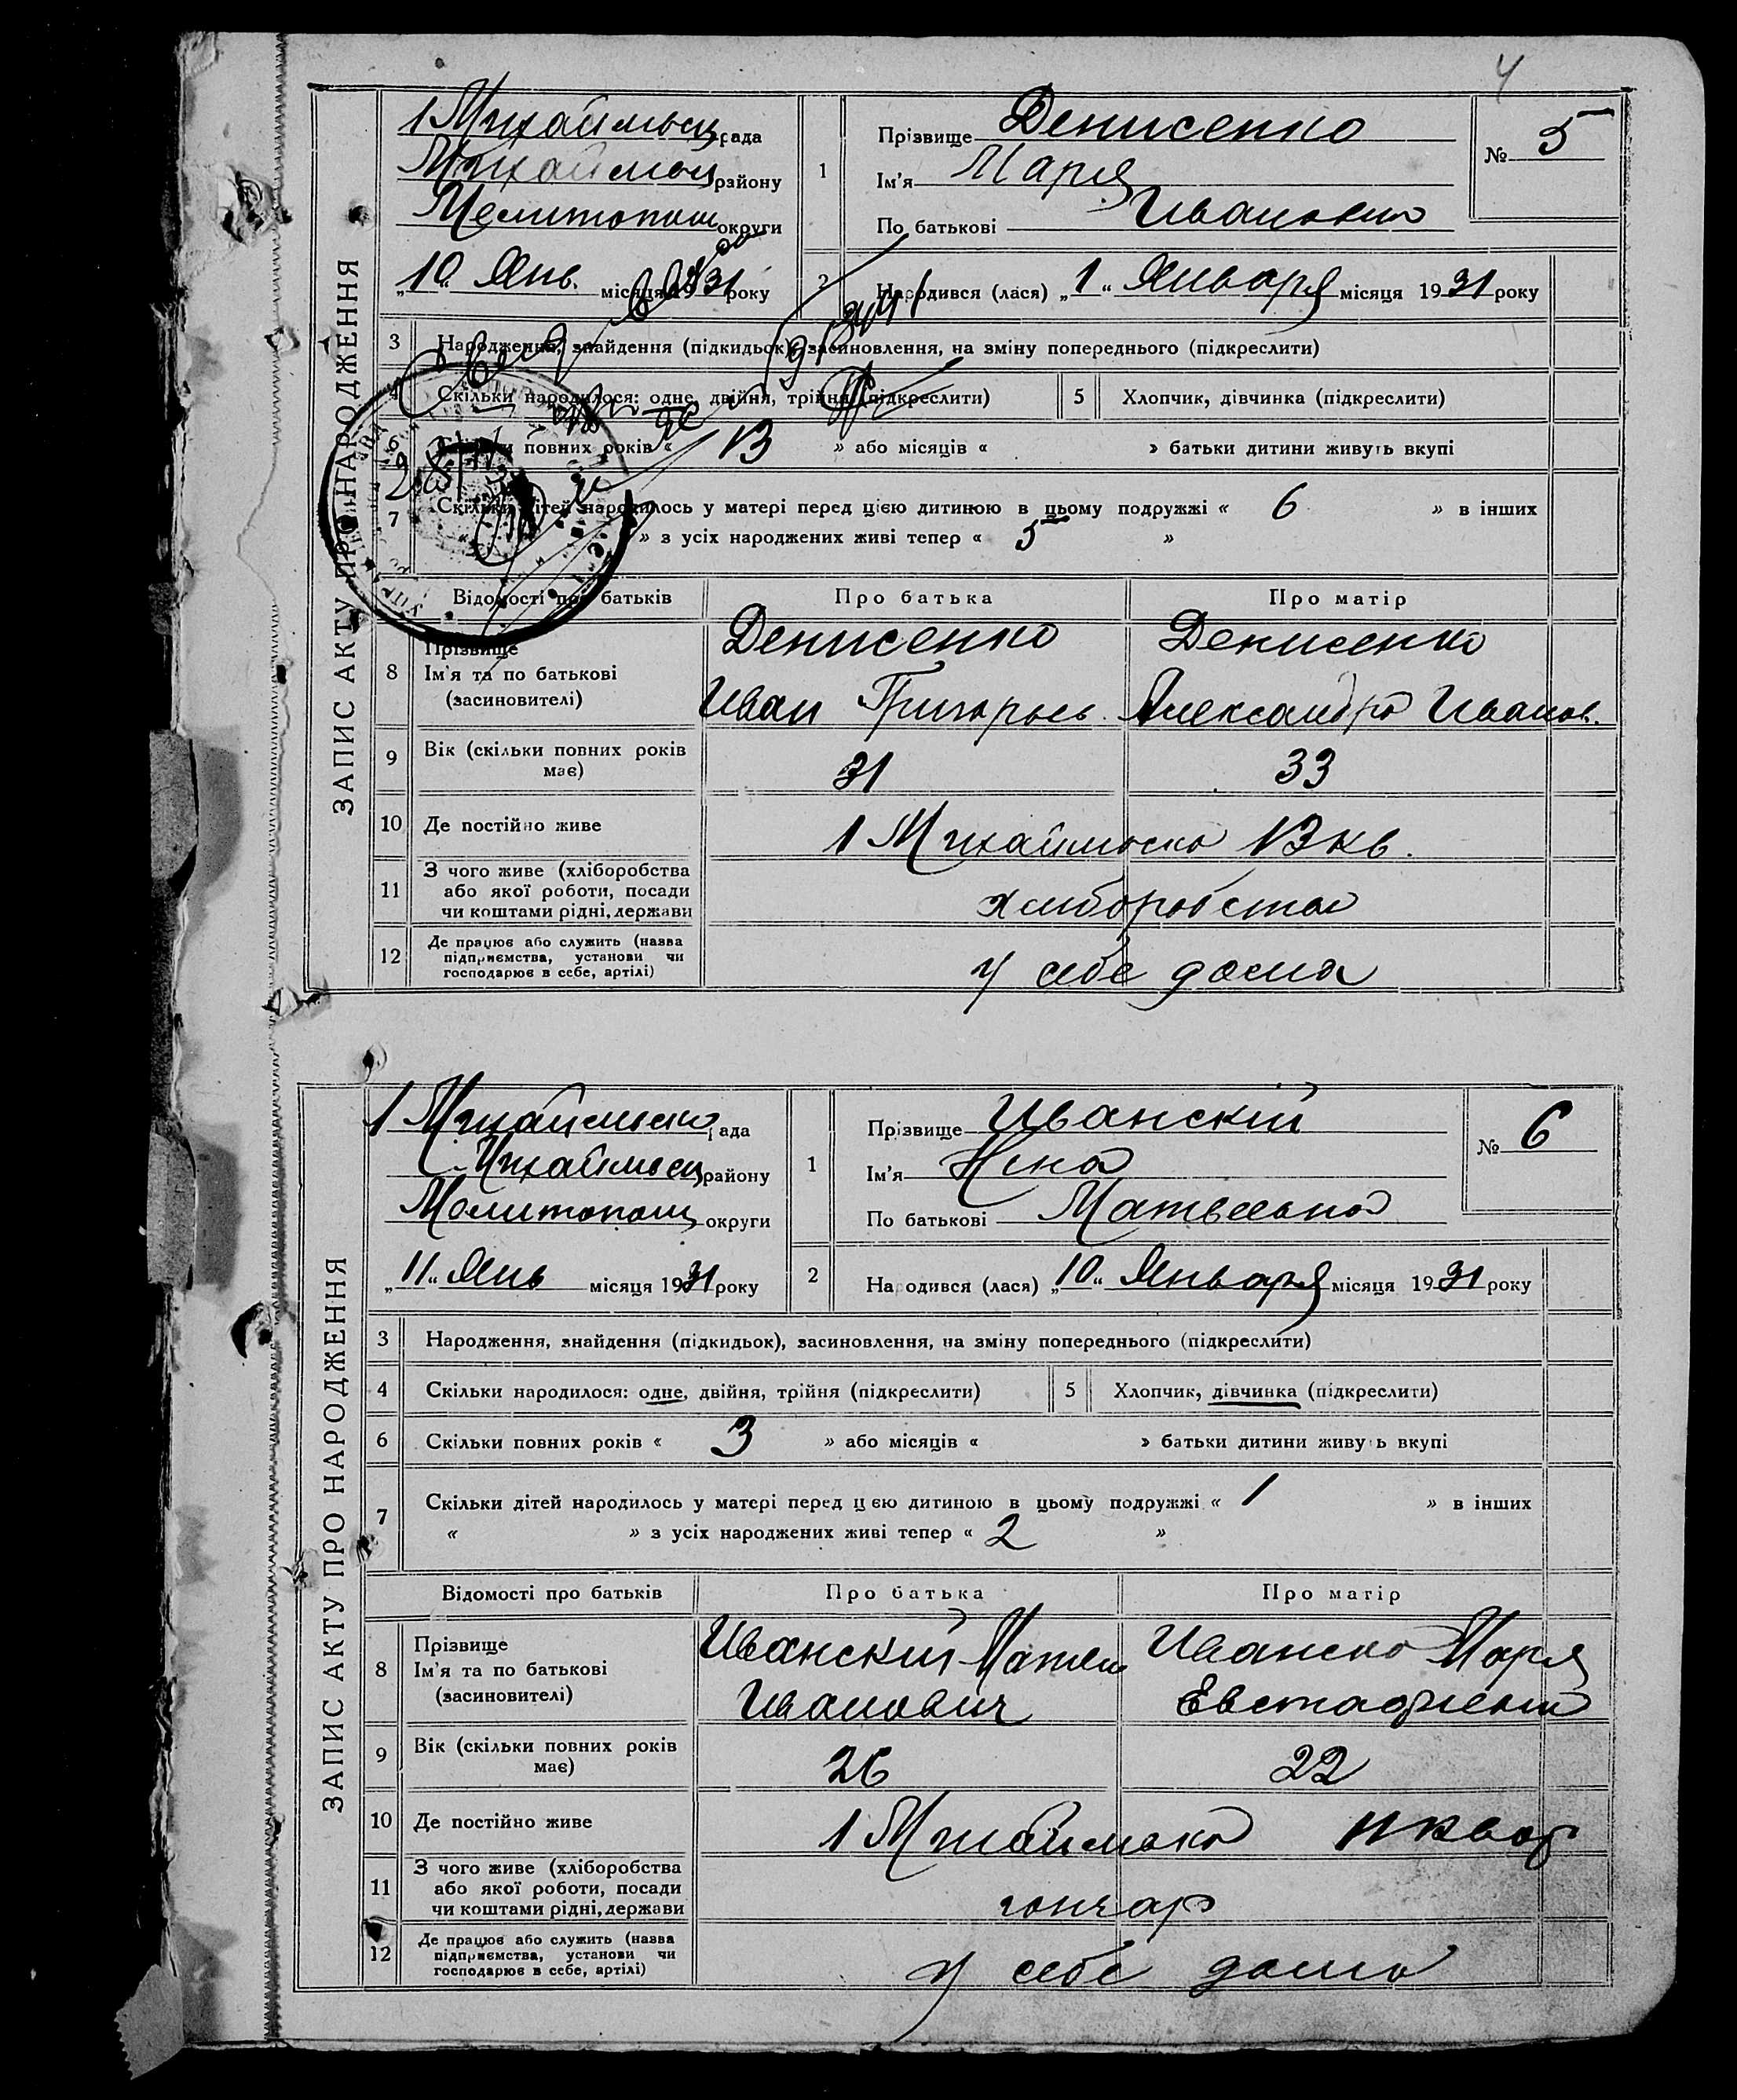 4
ЗАПИС АКТУ ПРО НАРОДЖЕННЯ
1 Михайлівськ рада
Михайлівськ району
Мелитопол округи
„10“ Янв. місяця 1931 року
1
Прізвище Денисенко
Ім'я Мария
По батькові Ивановна
№ 5
2
Народився (лася) „1“ Января місяця 1931 року
3 Народження, знайдення (підкидьок), засиновлення, на зміну попереднього (підкреслити)
4 Скільки народилося: одне, двійня, трійня (підкреслити)
5 Хлопчик, дівчинка (підкреслити)
6 Скільки повних років « 13 » або місяців « » батьки дитини живуть вкупі
7 Скільки дітей народилось у матері перед цією дитиною в цьому подружжі « 6 » в інших
« » з усіх народжених живі тепер « 5 »
Відомості про батьків Про батька Про матір
8 Прізвище Ім'я та по батькові (засиновителі)
Денисенко Денисенко
Иван Григорьев. Александра Иванов.
9 Вік (скільки повних років має) 31 33
10 Де постійно живе 1 Михайловка 13 кв.
11 З чого живе (хліборобства або якої роботи, посади чи коштами рідні, держави
хлиборобства
12 Де працює або служить (назва підприємства, установи чи господарює в себе, артілі)
у себе дома
ЗАПИС АКТУ ПРО НАРОДЖЕННЯ
рада
району
Мелитопол округи
„11“ Янв місяця 1931 року
1
Прізвище Иванскій
Ім'я Нина
По батькові Матвеевна
№ 6
2
Народився (лася) „10“ Января місяця 1931 року
3 Народження, знайдення (підкидьок), засиновлення, на зміну попереднього (підкреслити)
4 Скільки народилося: одне, двійня, трійня (підкреслити)
5 Хлопчик, дівчинка (підкреслити)
6 Скільки повних років « 3 » або місяців « » батьки дитини живуть вкупі
7 Скільки дітей народилось у матері перед цією дитиною в цьому подружжі « 1 » в інших
« » з усіх народжених живі тепер « 2 »
Відомості про батьків Про батька Про матір
8 Прізвище Ім'я та по батькові (засиновителі)
Иванский Матвей Мария
Иванович
9 Вік (скільки повних років має) 26 22
10 Де постійно живе 1 Михайловка
11 З чого живе (хліборобства або якої роботи, посади чи коштами рідні, держави
гончар
12 Де працює або служить (назва підприємства, установи чи господарює в себе, артілі)
у себе дома